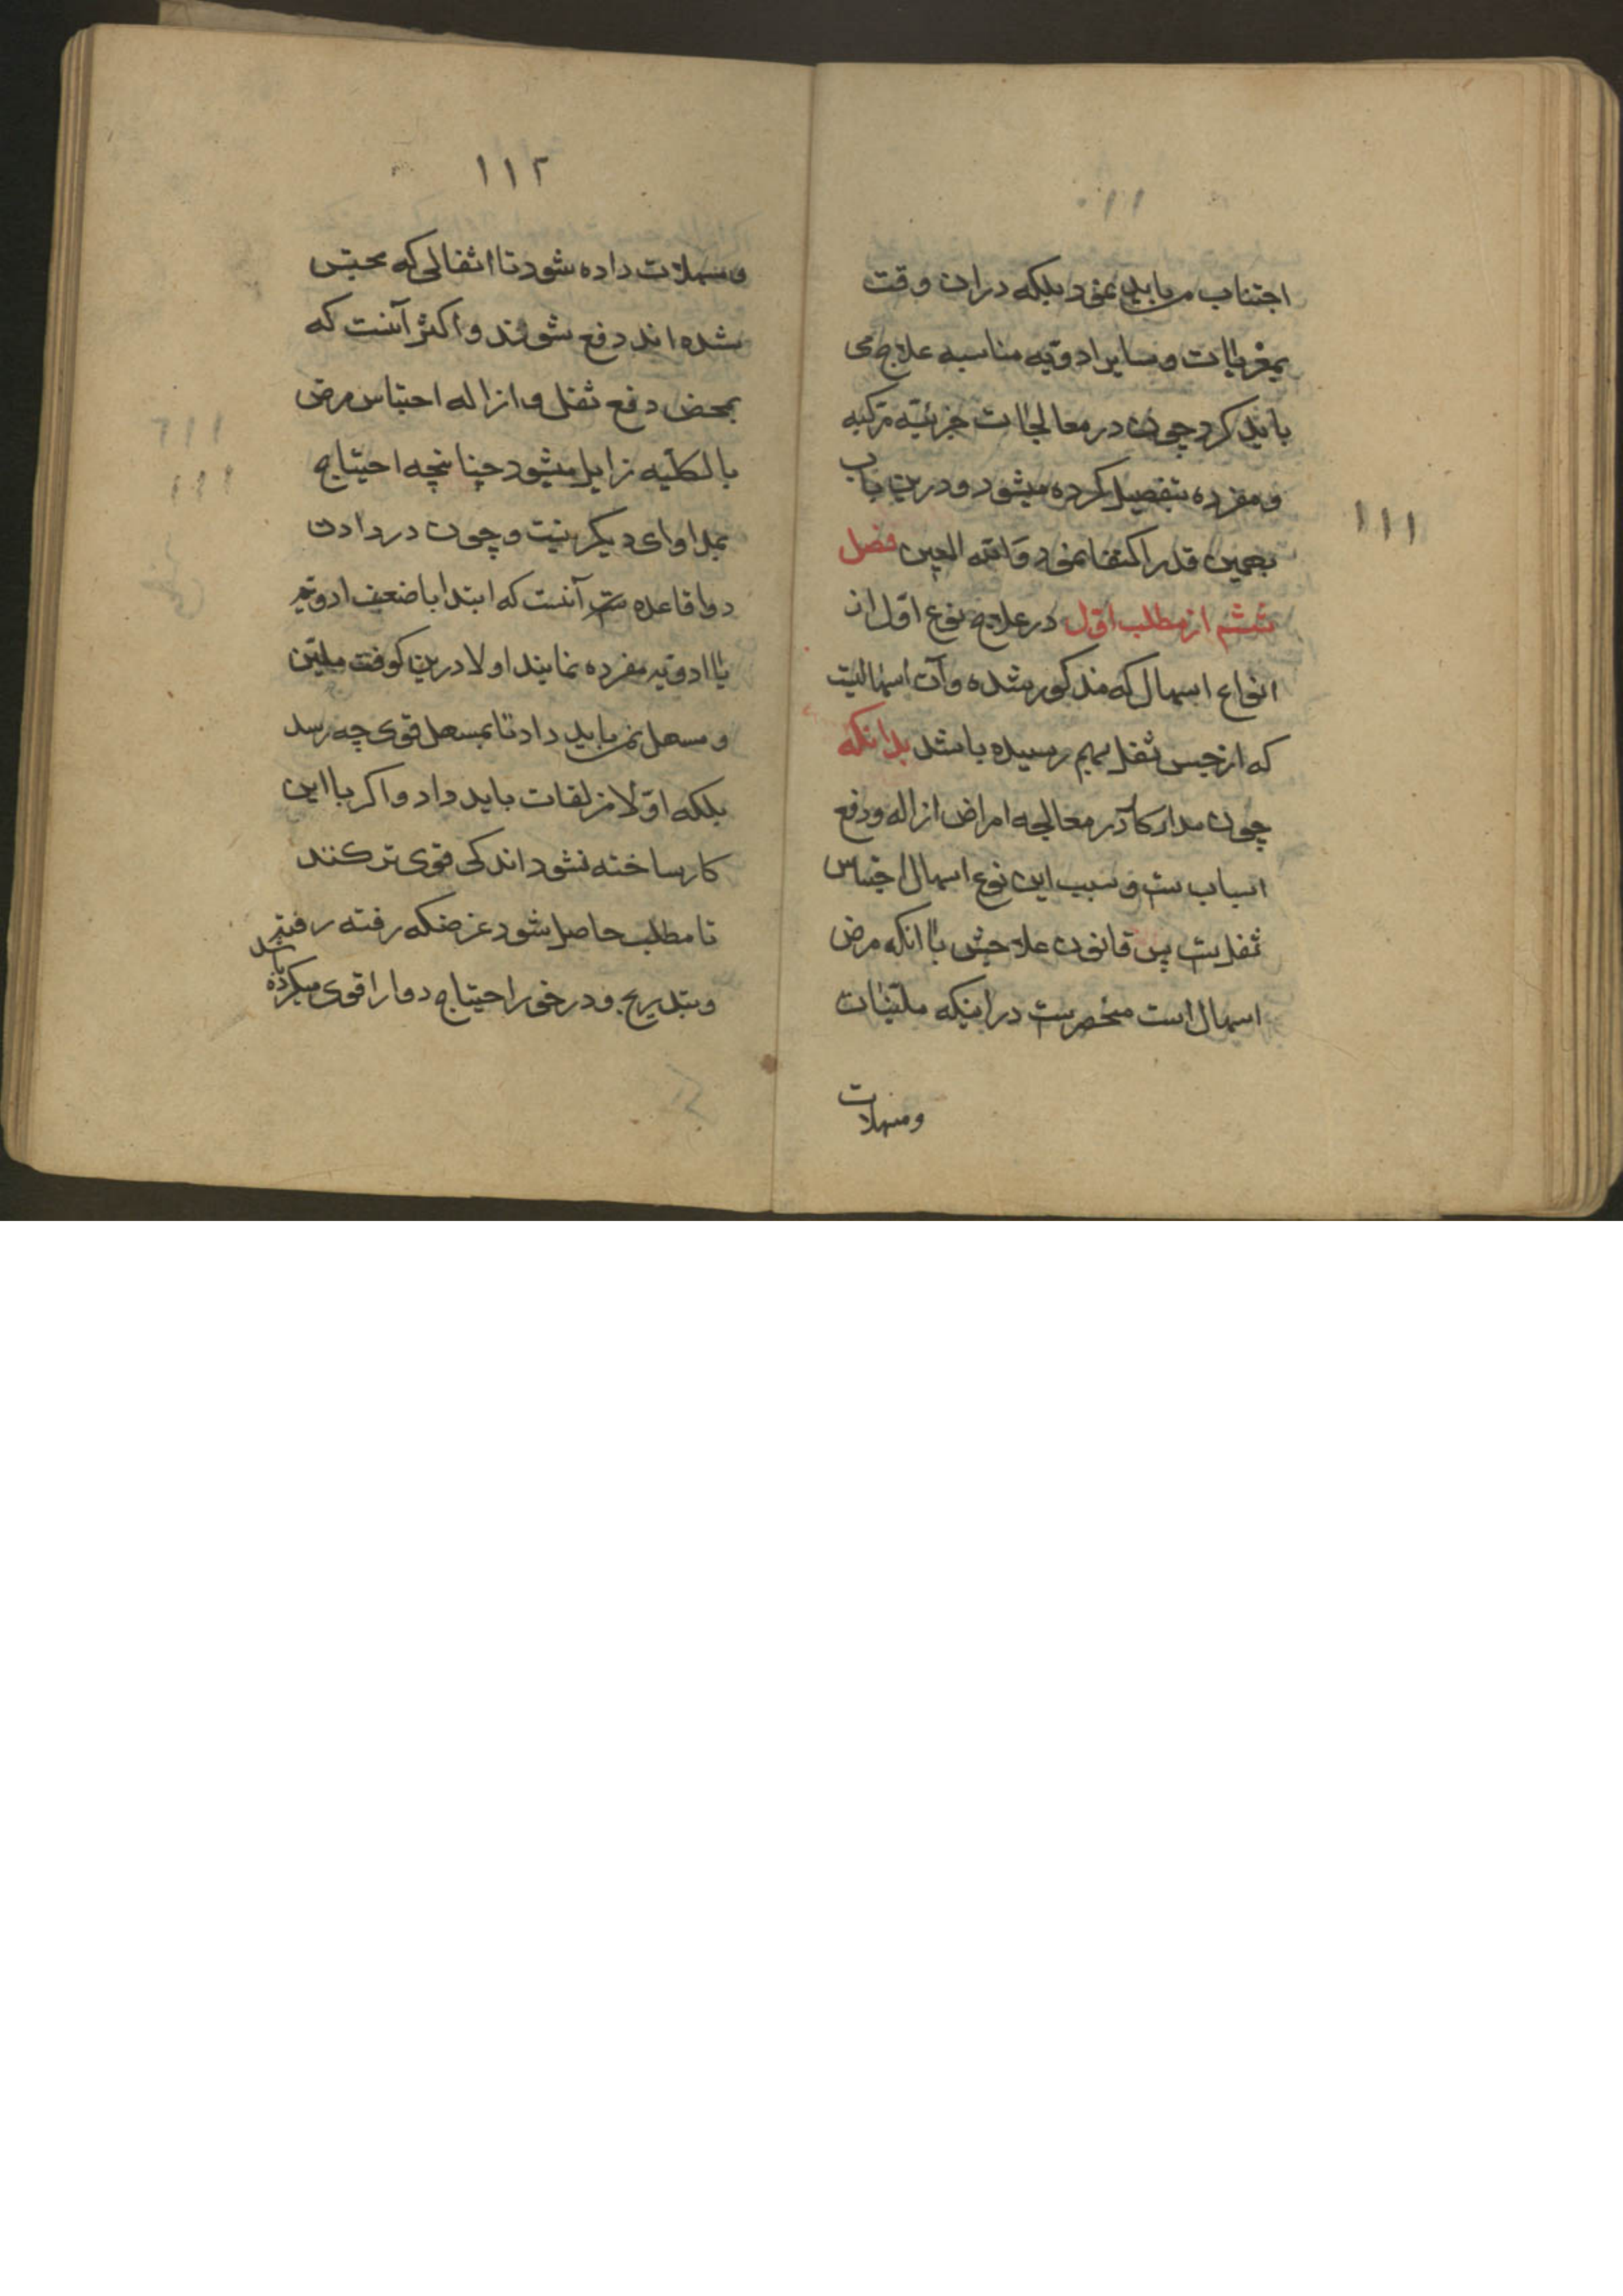 ۱۱۱
اجتناب می باید نمود بلکه در ان وقت
بمغریات و سایر ادویه مناسبه علاج می
باید کرد چون در معالجات جزئیه مرکبه
و مفرده بتفصیل کرده میشود و درین باب
بهمین قدر اکتفا نمود وَالله المعین فصل
ششم از مطلب اوّل در علاج نوع اوّل از
انواع اسهال که مذکور شده و آن اسهالیست
که از حبس ثفل بهم رسیده باشد بدانکه
چون مدار کار در معالجه امراض ازاله و دفع
اسباب ست و سبب این نوع اسهال احتباس
ثفل ست پس قانون علاجش با انکه مرض
اسهال است منحصر ست در اینکه ملیّنات
ومسهلات
۱۱۲
و مسهلات داده شود تا اثفالی که محتبس
شده اند دفع شوند و اکثر آنست که
بمحض دفع ثفل و ازاله احتباس مرض
بالکلّیه زایل میشود چنانچه احتیاج
بمداوای دیگر نیست و چون در دادن
دوا قاعده ست آنست که ابتدا باضعف ادویه
یا ادویه مفرده نمایند اولا درین کوفت ملیّن
و مسهل نمی باید داد تا بمسهل قوی چه رسد
بلکه اوّلا مزلقات باید داد و اکر با این
کار ساخته نشود اندکی قوی تر کنند
تا مطلب حاصل شود غرضکه رفته رفته
و بتدریج و در خور احتیاج دوا را قوی میکرده